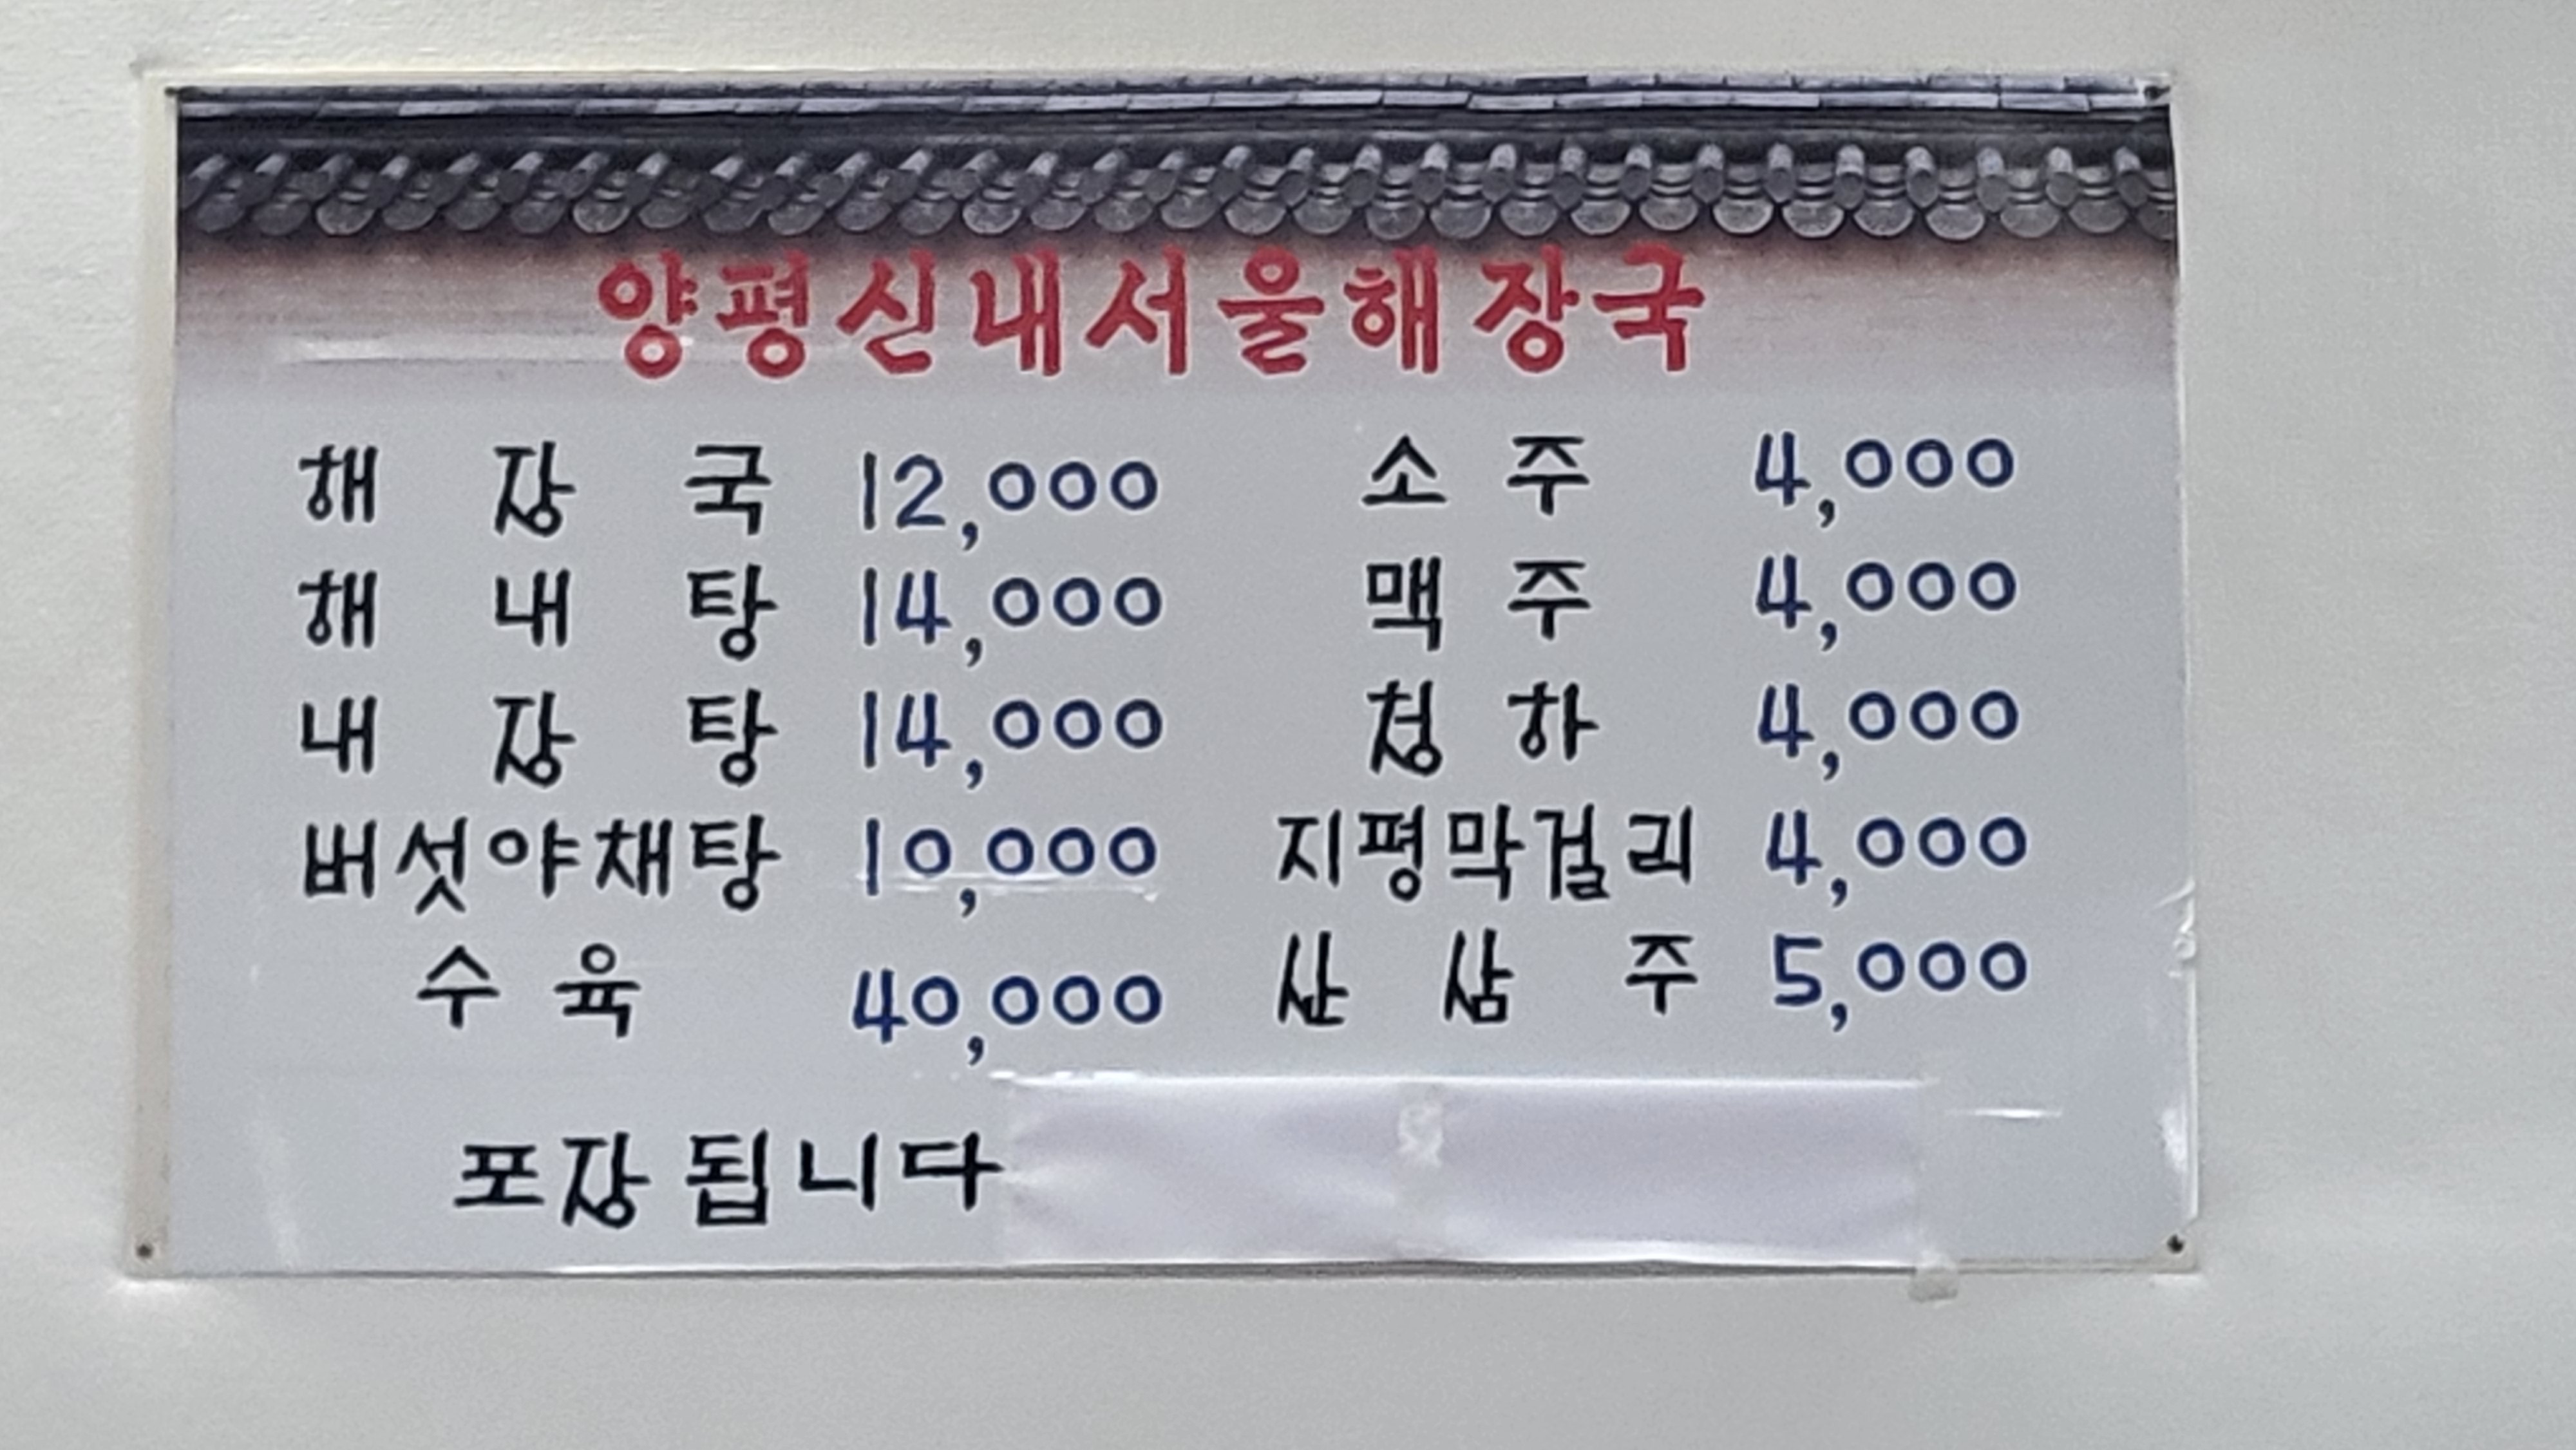 양평신내서울해장국
해장국 12,000
해내탕 14,000
내장탕 14,000
버섯야채탕 10,000
수육 40,000
소주 4,000
맥주 4,000
청하 4,000
지평막걸리 4,000
산삼주 5,000
포장됩니다